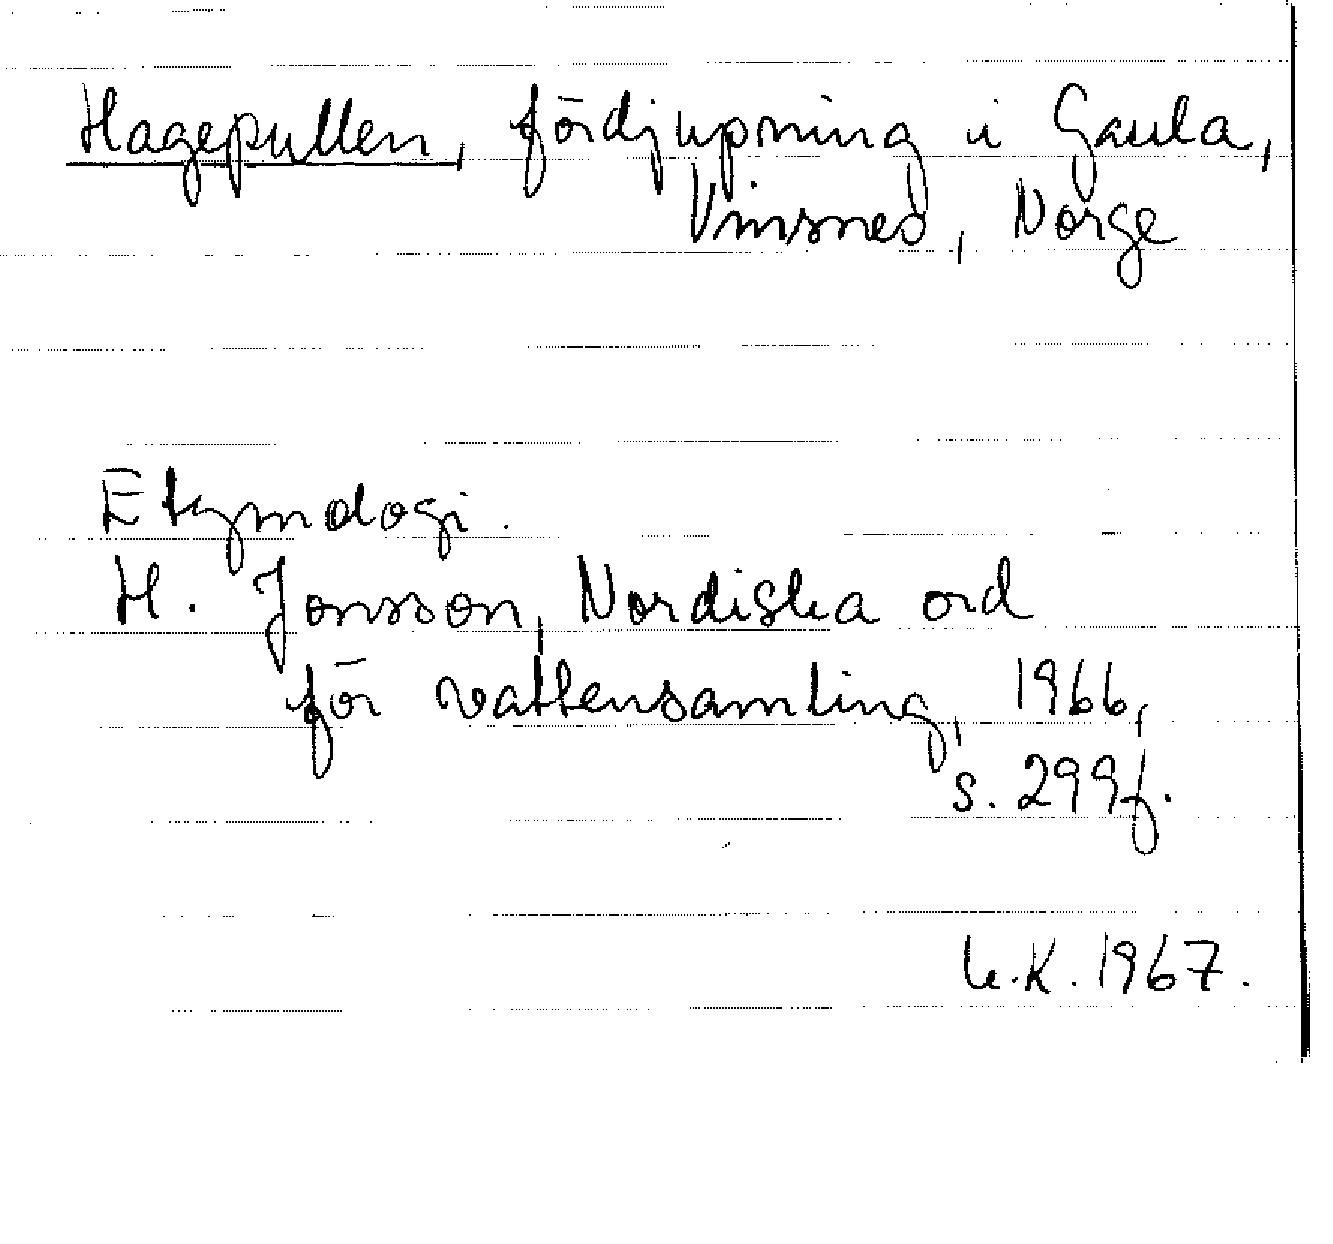 Hagepullen, fördjupning i Gaula,
Vinsnes, Norge
Etymologi.
H. Jonsson, Nordiska ord
för vattensamling, 1966,
s. 299f.
U.K. 1967.